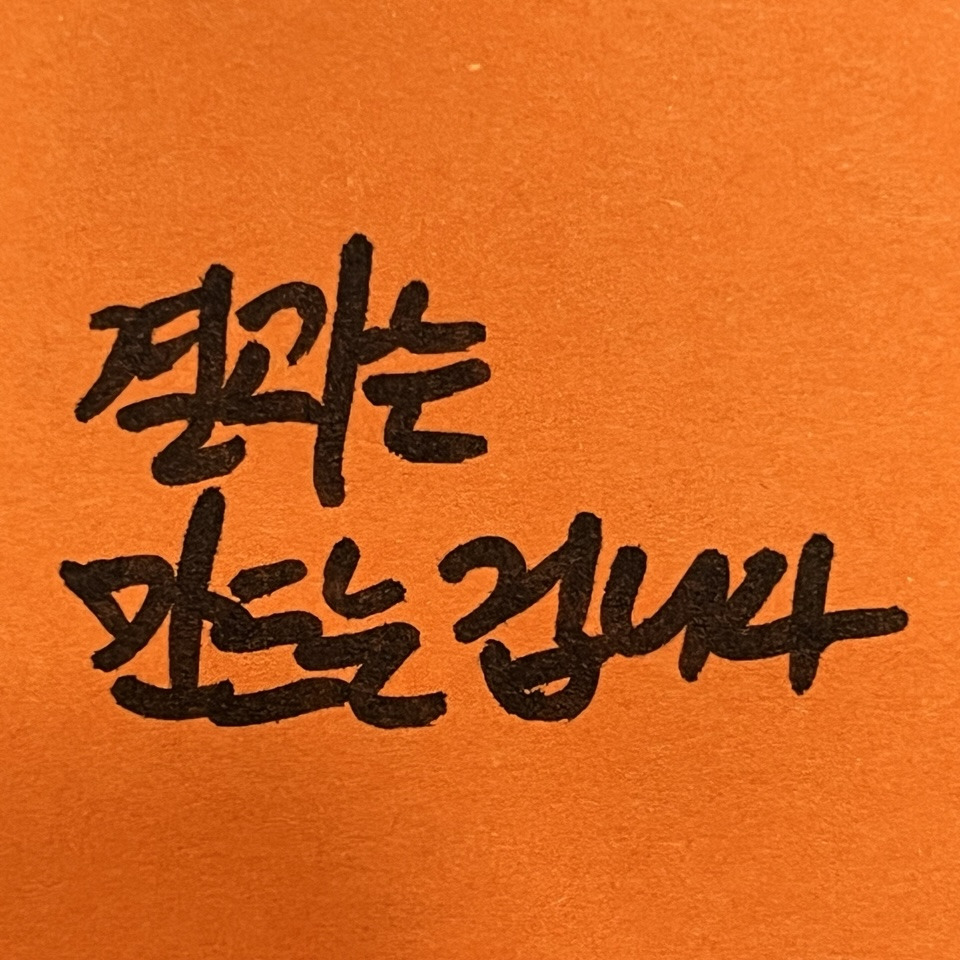 결과는
만드는 겁니다